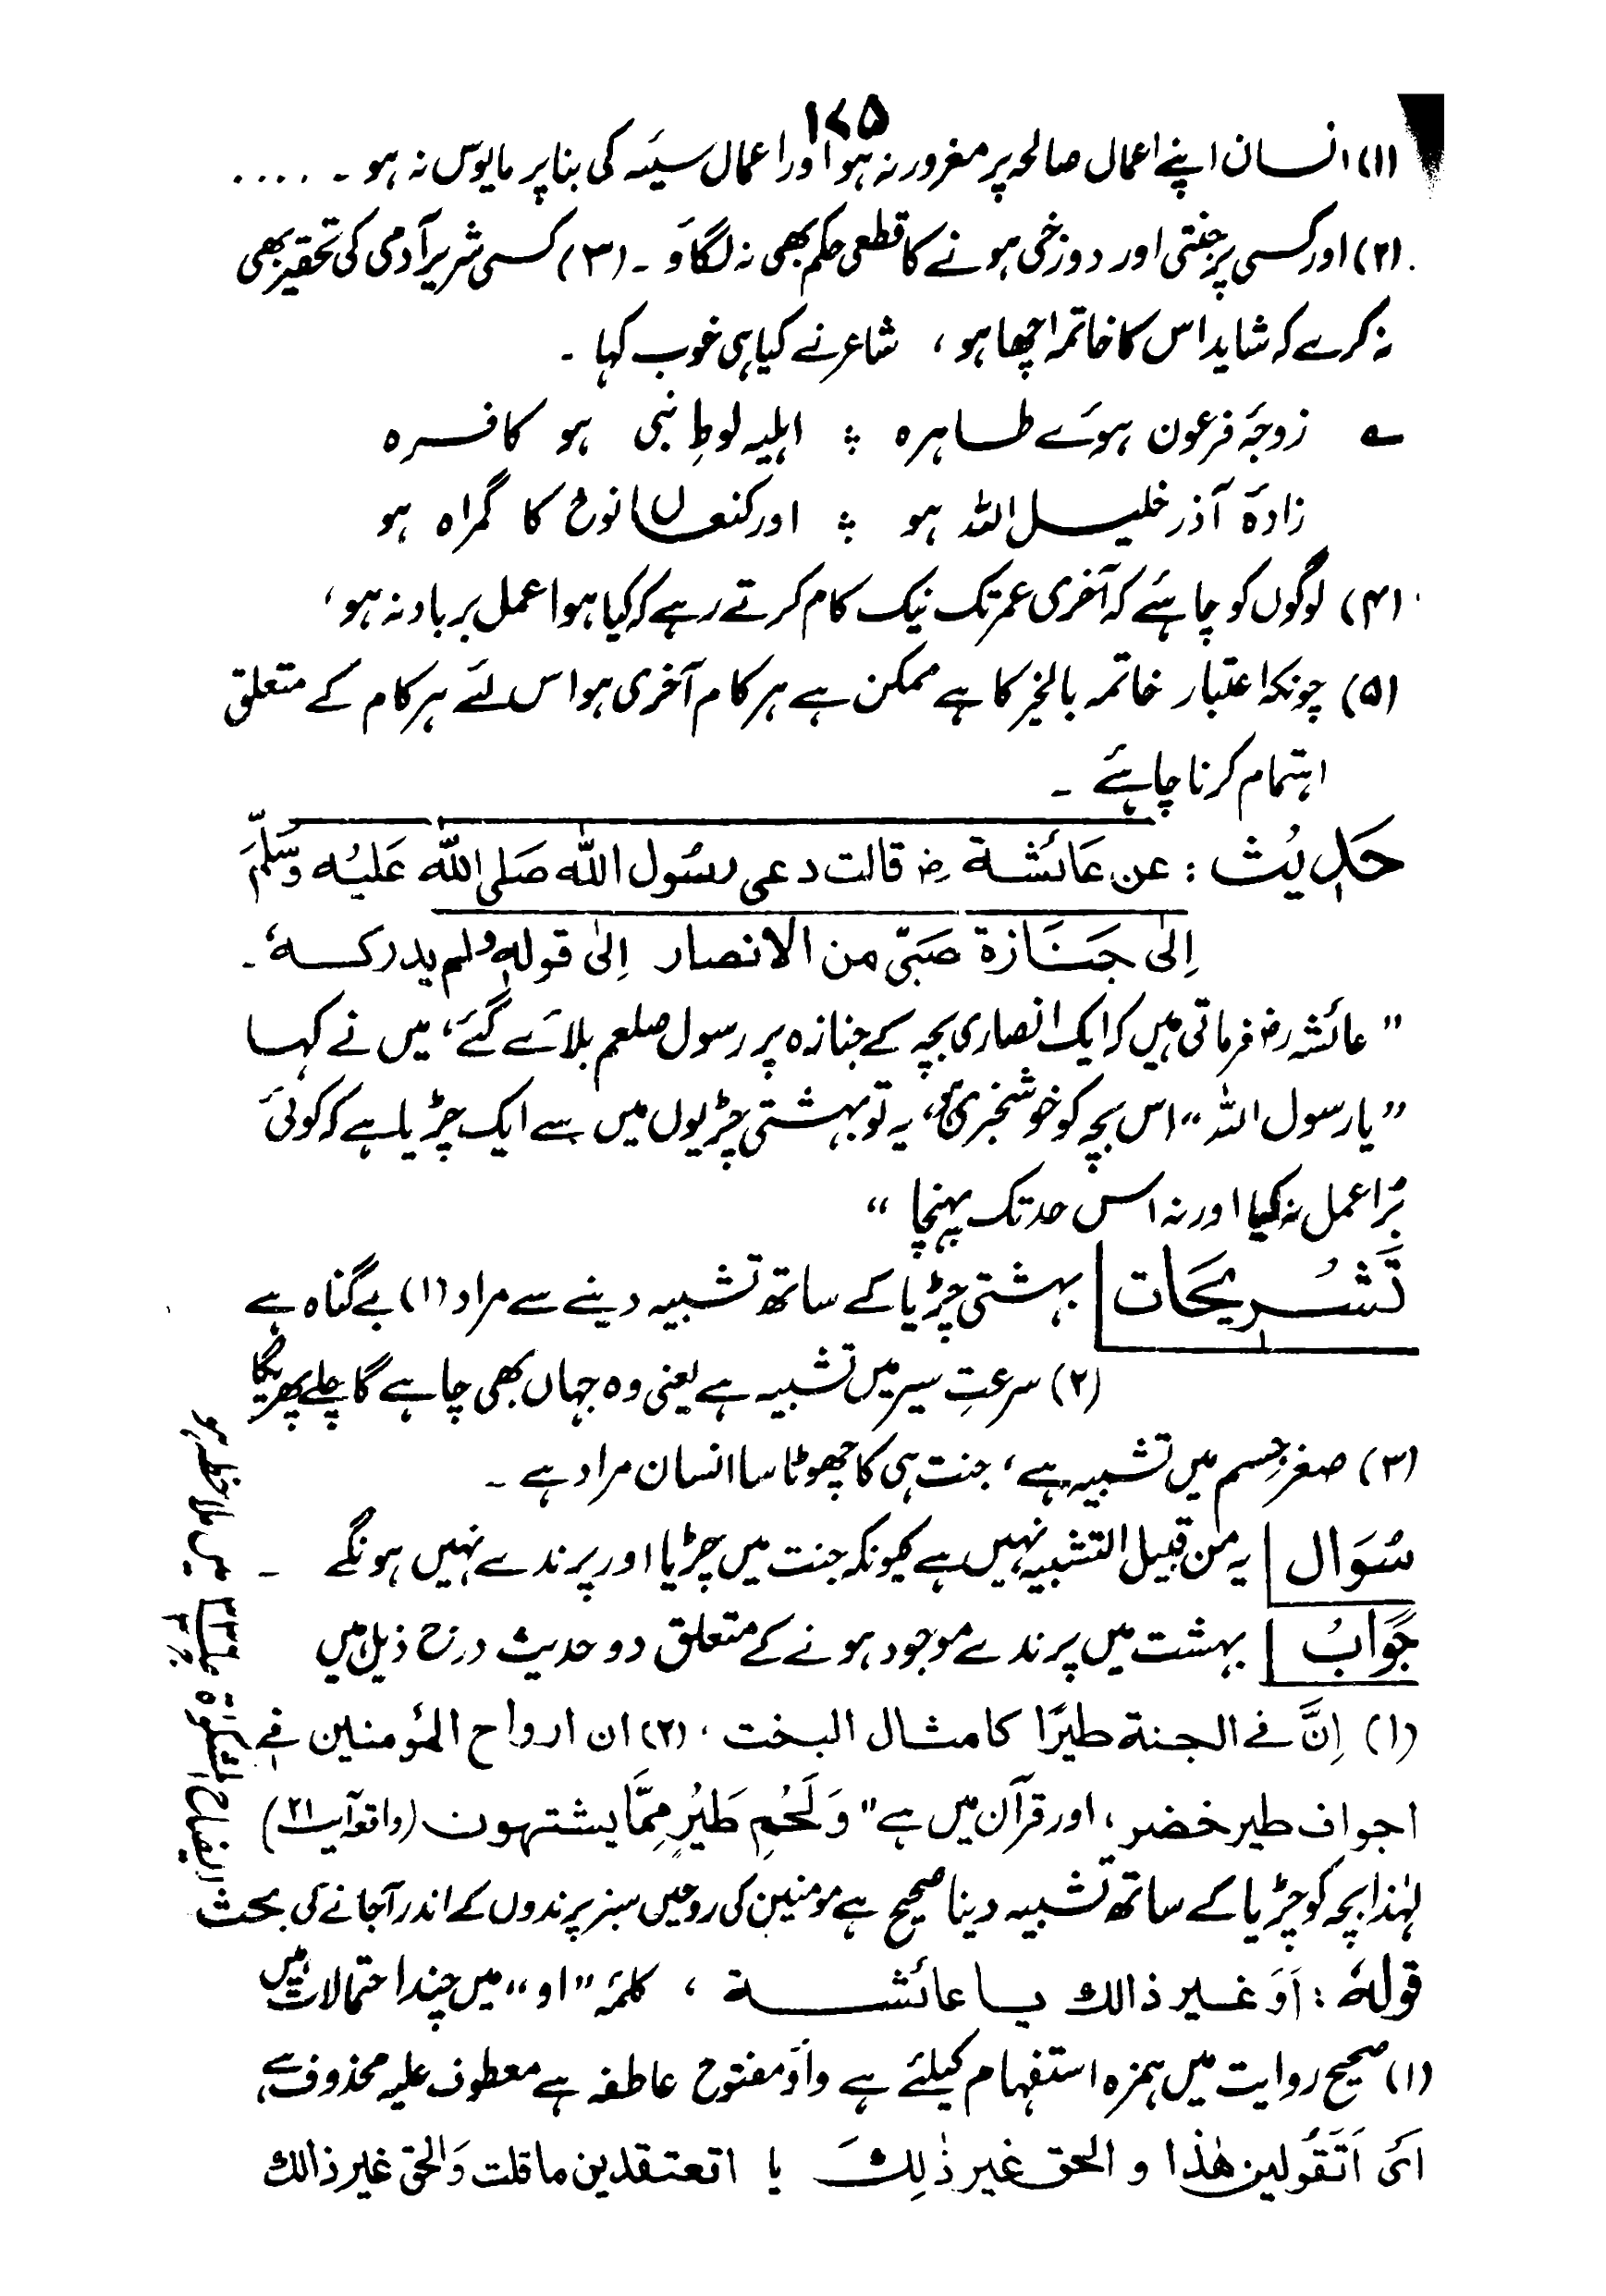 ۱۷۵
(۱) انسان اپنے اعمال صالحہ پر مغرور نہ ہو اور اعمال سیئہ کی بنا پر مایوس نہ ہو ۔ ....
(۲) اور کسی پر جنتی اور دوزخی ہونے کا قطعی حکم بھی نہ لگاؤ ۔ (۳) کسی شریر آدمی کی تحقیر بھی
نہ کرے کہ شاید اس کا خاتمہ اچھا ہو ، شاعر نے کیا ہی خوب کہا ۔
؎ زوجۂ فرعون ہوئے طاہرہ ؛ اہلیہ لوطِ نبی ہو کافرہ
زادۂ آذر خلیل اللہ ہو ؛ اور کنعاں نوح کا گمراہ ہو
(۴) لوگوں کو چاہئے کہ آخری عمر تک نیک کام کرتے رہے کہ کیا ہوا عمل برباد نہ ہو ،
(۵) چونکہ اعتبار خاتمہ بالخیر کا ہے ممکن ہے ہر کام آخری ہو اس لئے ہر کام کے متعلق
اہتمام کرنا چاہئے ۔
حَدِیْث : عن عَائشة رض قالت دعی رسُول اللّٰہ صَلی اللّٰہ عَلیْہ وَسَلَّمَ
اِلیٰ جَنَازة صَبّی من الانصار اِلیٰ قولہٖ ولم یدرکہٗ ۔
” عائشہ رض فرماتی ہیں کہ ایک انصاری بچہ کے جنازہ پر رسول صلعم بلائے گئے ، میں نے کہا
” یا رسول اللہ “ اس بچہ کو خوشخبری ہو ، یہ تو بہشتی چڑیوں میں سے ایک چڑیا ہے کہ کوئی
بُرا عمل نہ کیا اور نہ اس حد تک پہنچا “
تَشْرِیحَات | بہشتی چڑیا کے ساتھ تشبیہ دینے سے مراد (۱) بے گناہ ہے
(۲) سرعتِ سیر میں تشبیہ ہے یعنی وہ جہاں بھی چاہے گا چلے پھریگا
(۳) صغر جسم میں تشبیہ ہے ، جنت ہی کا چھوٹا سا انسان مراد ہے ۔
سُوَال | یہ من قبیل التشبیہ نہیں ہے کیونکہ جنت میں چڑیا اور پرندے نہیں ہونگے ۔
جَوَابُ | بہشت میں پرندے موجود ہونے کے متعلق دو حدیث درج ذیل ہیں
(۱) اِنَّ فے الجنة طیرًا کامثال البخت ، (۲) ان ارواح المؤمنین فے
اجواف طیر خضر ، اور قرآن میں ہے ” وَلَحْمِ طَیْرٍ مِمَّا یشتہون (واقعہ آیت ۲۱)
لہٰذا بچہ کو چڑیا کے ساتھ تشبیہ دینا صحیح ہے مومنین کی روحیں سبز پرندوں کے اندر آجانے کی بحث
ایضاح المشکوٰۃ میں ملاحظہ ہو
قولہٗ : اَوَ غیر ذالك یا عائشة ، کلمۂ ” او “ میں چند احتمالات ہیں
(۱) صحیح روایت میں ہمزہ استفہام کیلئے ہے واؤ مفتوح عاطفہ ہے معطوف علیہ محذوف ہے
اَیْ اَتَقُولین ھٰذا و الحق غیر ذٰلِكَ یا اتعتقدین ما قلت وَالحق غیر ذالك